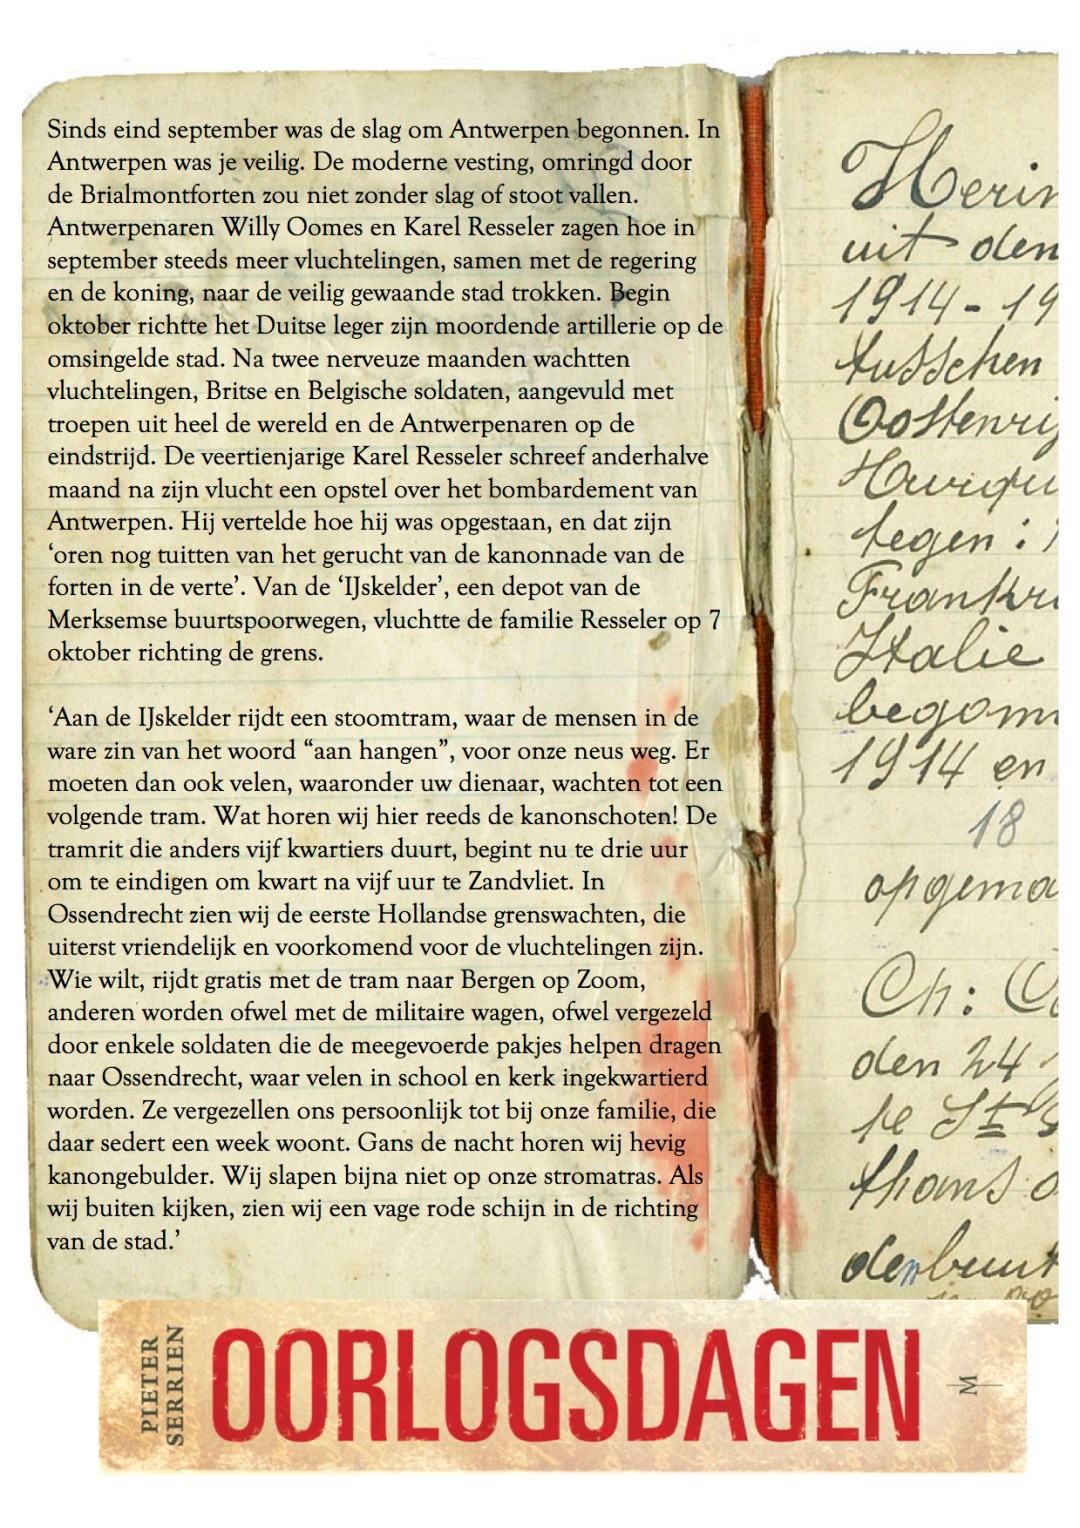 Sinds eind september was de slag om Antwerpen begonnen. In
Antwerpen was je veilig. De moderne vesting, omringd door
de Brialmontforten zou niet zonder slag of stoot vallen.
Antwerpenaren Willy Oomes en Karel Resseler zagen hoe in
september steeds meer vluchtelingen, samen met de regering
en de koning, naar de veilig gewaande stad trokken. Begin
oktober richtte het Duitse leger zijn moordende artillerie op de
omsingelde stad. Na twee nerveuze maanden wachtten
vluchtelingen, Britse en Belgische soldaten, aangevuld met
troepen uit heel de wereld en de Antwerpenaren op de
eindstrijd. De veertienjarige Karel Resseler schreef anderhalve
maand na zijn vlucht een opstel over het bombardement van
Antwerpen. Hij vertelde hoe hij was opgestaan, en dat zijn
‘oren nog tuitten van het gerucht van de kanonnade van de
forten in de verte’. Van de ‘IJskelder’, een depot van de
Merksemse buurtspoorwegen, vluchtte de familie Resseler op 7
oktober richting de grens.
‘Aan de IJskelder rijdt een stoomtram, waar de mensen in de
ware zin van het woord “aan hangen”, voor onze neus weg. Er
moeten dan ook velen, waaronder uw dienaar, wachten tot een
volgende tram. Wat horen wij hier reeds de kanonschoten! De
tramrit die anders vijf kwartiers duurt, begint nu te drie uur
om te eindigen om kwart na vijf uur te Zandvliet. In
Ossendrecht zien wij de eerste Hollandse grenswachten, die
uiterst vriendelijk en voorkomend voor de vluchtelingen zijn.
Wie wilt, rijdt gratis met de tram naar Bergen op Zoom,
anderen worden ofwel met de militaire wagen, ofwel vergezeld
door enkele soldaten die de meegevoerde pakjes helpen dragen
naar Ossendrecht, waar velen in school en kerk ingekwartierd
worden. Ze vergezellen ons persoonlijk tot bij onze familie, die
daar sedert een week woont. Gans de nacht horen wij hevig
kanongebulder. Wij slapen bijna niet op onze stromatras. Als
wij buiten kijken, zien wij een vage rode schijn in de richting
van de stad.’
Herin
uit den
1914-19
tusschen
Oostenrij
tegen :
Frankr
Italie
begonn
1914 en
18
opgema
Ch:
den 24
te St
thans
PIETER
SERRIEN
OORLOGSDAGEN
M